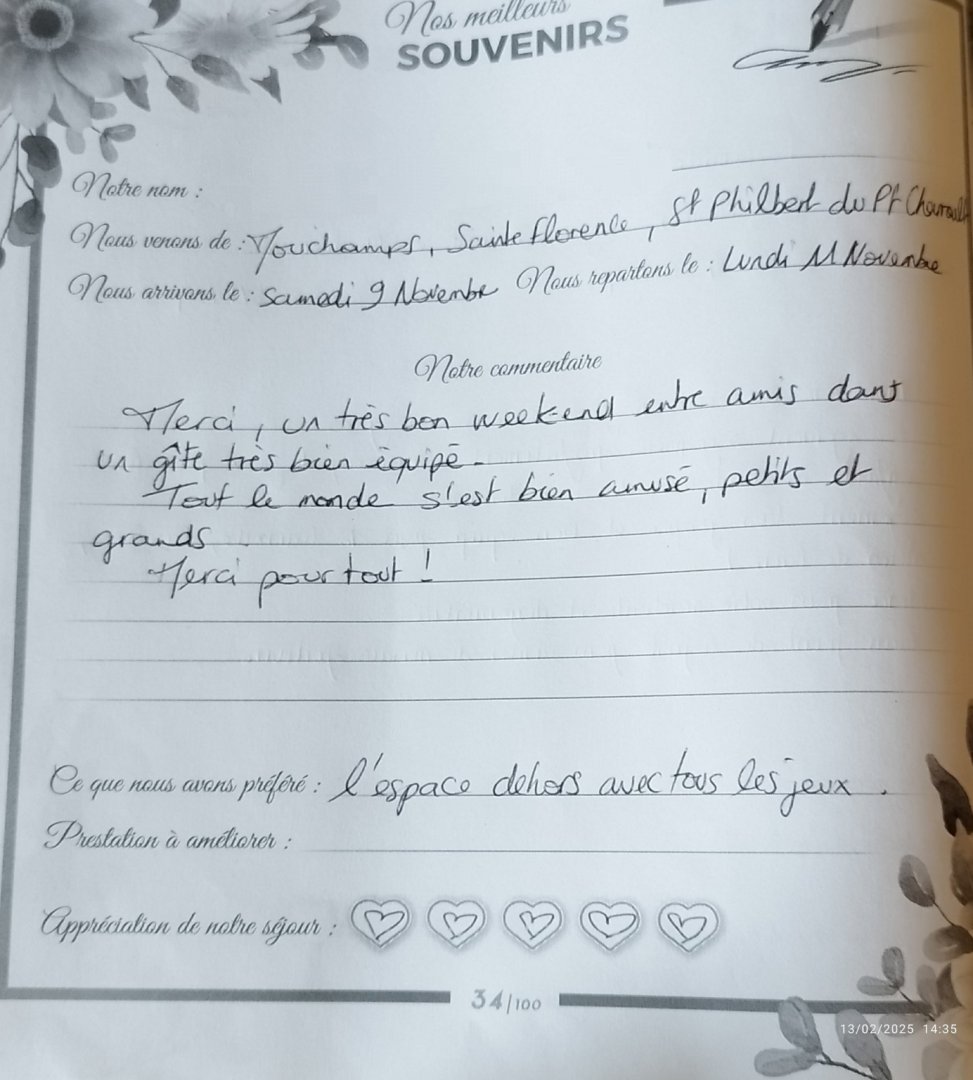 Nos meilleurs
SOUVENIRS
Notre nom :
Nous venons de : Mouchamps, Sainte Florence, St Philbert du Pt Charrault
Nous arrivons le : Samedi 9 Novembre Nous repartons le : Lundi 11 Novembre
Notre commentaire
Merci, un très bon week-end entre amis dans
un gîte très bien équipé.
Tout le monde s'est bien amusé, petits et
grands
Merci pour tout !
Ce que nous avons préféré : l'espace dehors avec tous les jeux.
Prestation à améliorer :
Appréciation de notre séjour :
34/100
13/02/2025 14:35